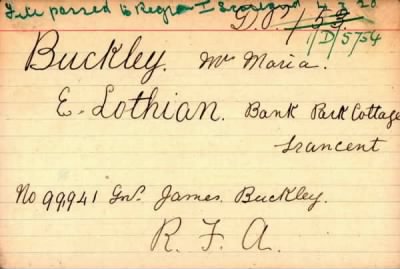 File passed to Regn I Scotland 4.3.20
G.D. 153.
1/D/5754
Buckley. Mrs Maria.
E. Lothian. Bank Park Cottage
Trancent
No 99941 Gnr. James. Buckley.
R. F. A.